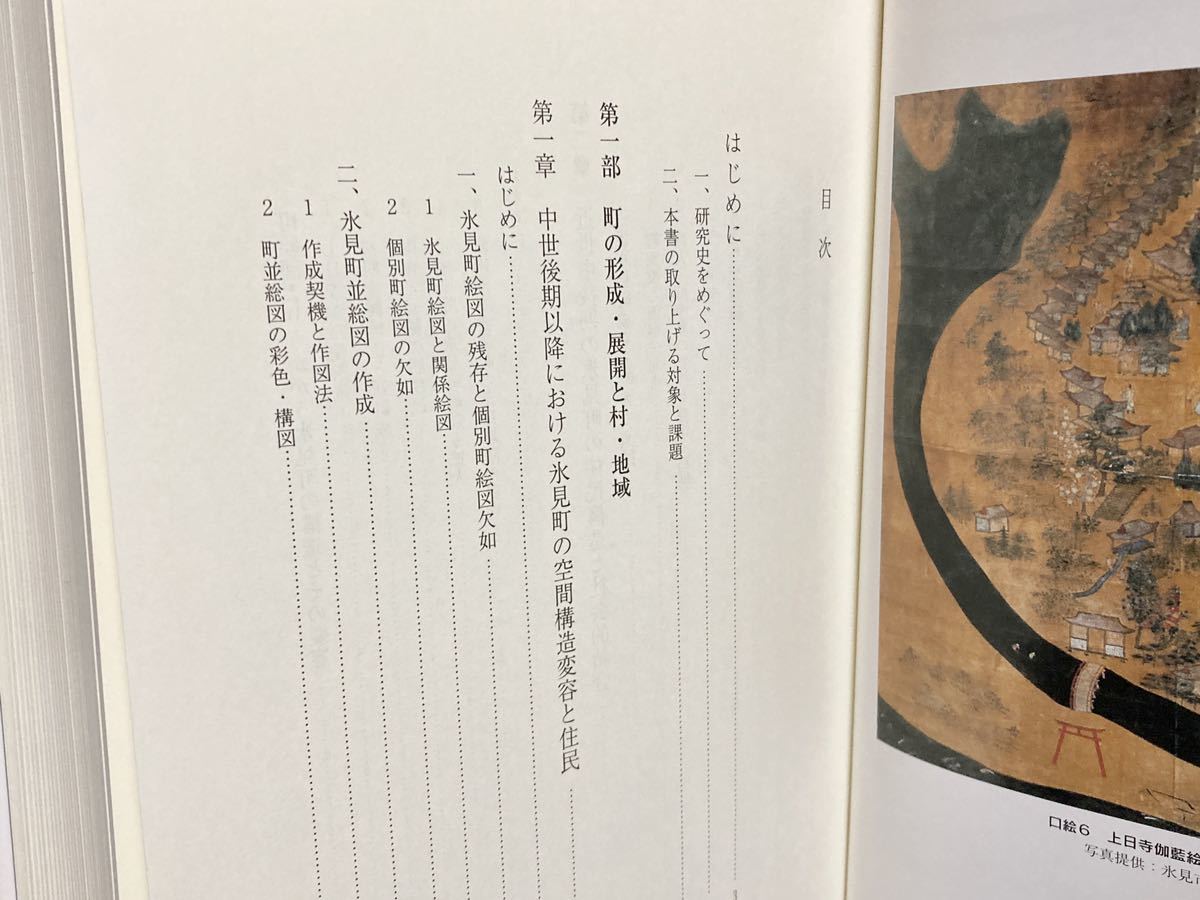 目次
はじめに
一、研究史をめぐって
二、本書の取り上げる対象と課題
第一部 町の形成・展開と村・地域
第一章 中世後期以降における氷見町の空間構造変容と住民
はじめに
一、氷見町絵図の残存と個別町絵図欠如
1 氷見町絵図と関係絵図
2 個別町絵図の欠如
二、氷見町並総図の作成
1 作成契機と作図法
2 町並総図の彩色・構図
口絵6 上日寺伽藍絵
写真提供:氷見市